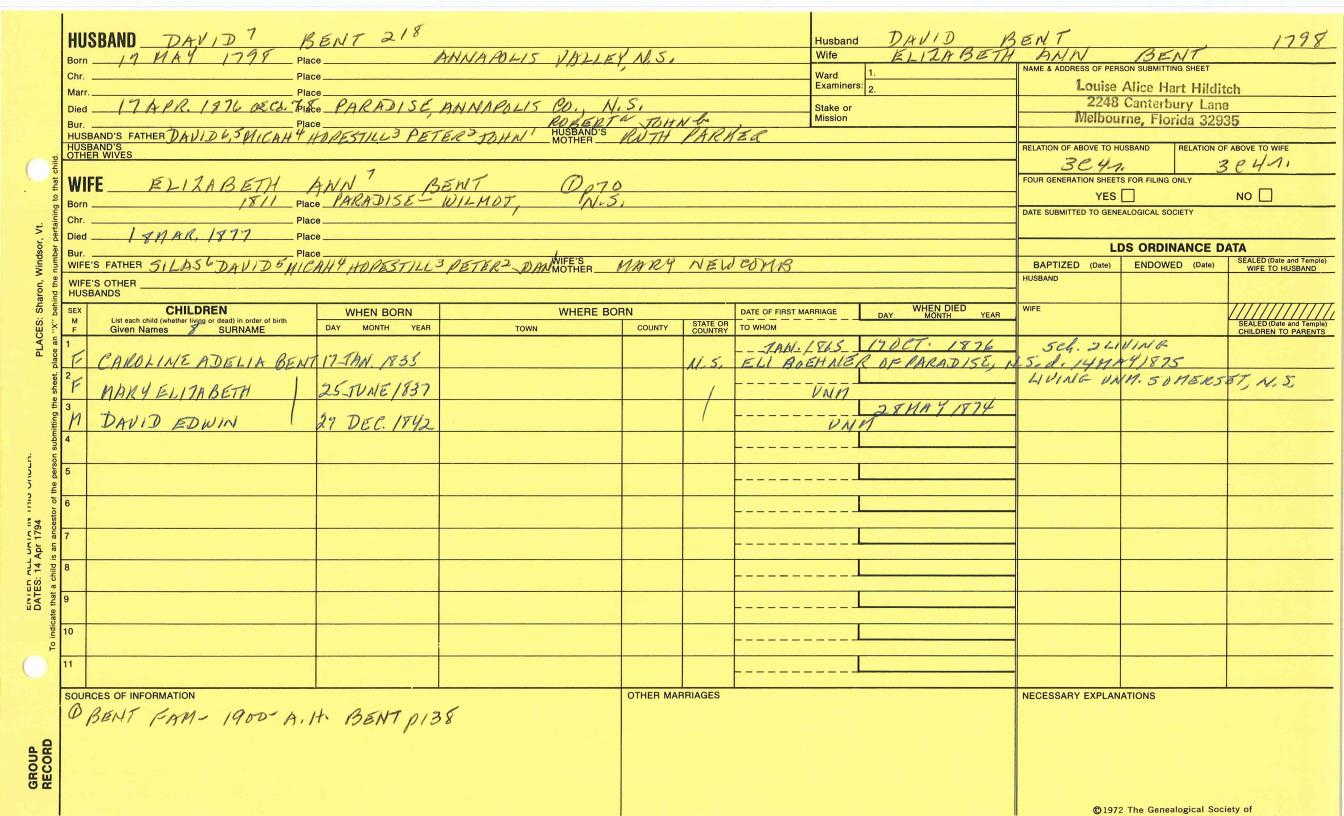 HUSBAND DAVID 7 BENT 218
Born 17 MAY 1798 Place ANNAPOLIS VALLEY, N.S.
Chr. Place
Marr. Place
Died 17 APR. 1876 Place PARADISE, ANNAPOLIS CO., N.S.
Bur. Place ROBERT JOHN
HUSBAND'S FATHER DAVID 6, 5 MICAH 4 HOPESTILL 3 PETER 2 JOHN 1 HUSBAND'S MOTHER RUTH PARKER
HUSBAND'S OTHER WIVES
Husband DAVID BENT 1798
Wife ELIZABETH ANN BENT
Ward Examiners: 1.
2.
Stake or Mission
NAME & ADDRESS OF PERSON SUBMITTING SHEET
Louise Alice Hart Hilditch
2248 Canterbury Lane
Melbourne, Florida 32935
RELATION OF ABOVE TO HUSBAND RELATION OF ABOVE TO WIFE
3C4r. 3C4r.
FOUR GENERATION SHEETS FOR FILING ONLY
YES NO
DATE SUBMITTED TO GENEALOGICAL SOCIETY
WIFE ELIZABETH ANN 7 BENT ① p70
Born 1811 Place PARADISE - WILMOT, N.S.
Chr. Place
Died 18 MAR. 1877 Place
Bur. Place
WIFE'S FATHER SILAS 6 DAVID 5 MICAH 4 HOPESTILL 3 PETER 2 WIFE'S MOTHER MARY NEWCOMB
WIFE'S OTHER HUSBANDS
LDS ORDINANCE DATA
BAPTIZED (Date) ENDOWED (Date) SEALED (Date and Temple) WIFE TO HUSBAND
HUSBAND
WIFE
SEALED (Date and Temple) CHILDREN TO PARENTS
SEX M F
CHILDREN
List each child (whether living or dead) in order of birth
Given Names SURNAME
WHEN BORN
DAY MONTH YEAR
WHERE BORN
TOWN COUNTY STATE OR COUNTRY
DATE OF FIRST MARRIAGE
TO WHOM
WHEN DIED
DAY MONTH YEAR
1 JAN. 1865 17 OCT. 1876 5ch. 2 LIVING
F CAROLINE ADELIA BENT 17 JAN. 1835 N.S. ELI BOEHNER OF PARADISE, N.S. d. 14 MAY 1875
2 LIVING UNM. SOMERSET, N.S.
F MARY ELIZABETH 25 JUNE 1837 UNM
3 28 MAY 1874
M DAVID EDWIN 27 DEC. 1842 UNM
4
5
6
7
8
9
10
11
SOURCES OF INFORMATION
① BENT FAM - 1900 - A.H. BENT p138
OTHER MARRIAGES
NECESSARY EXPLANATIONS
©1972 The Genealogical Society of
PLACES: Sharon, Windsor, Vt.
DATES: 14 Apr 1794
To indicate that a child is an ancestor of the person submitting the sheet, place an "X" behind the number pertaining to that child.
GROUP RECORD